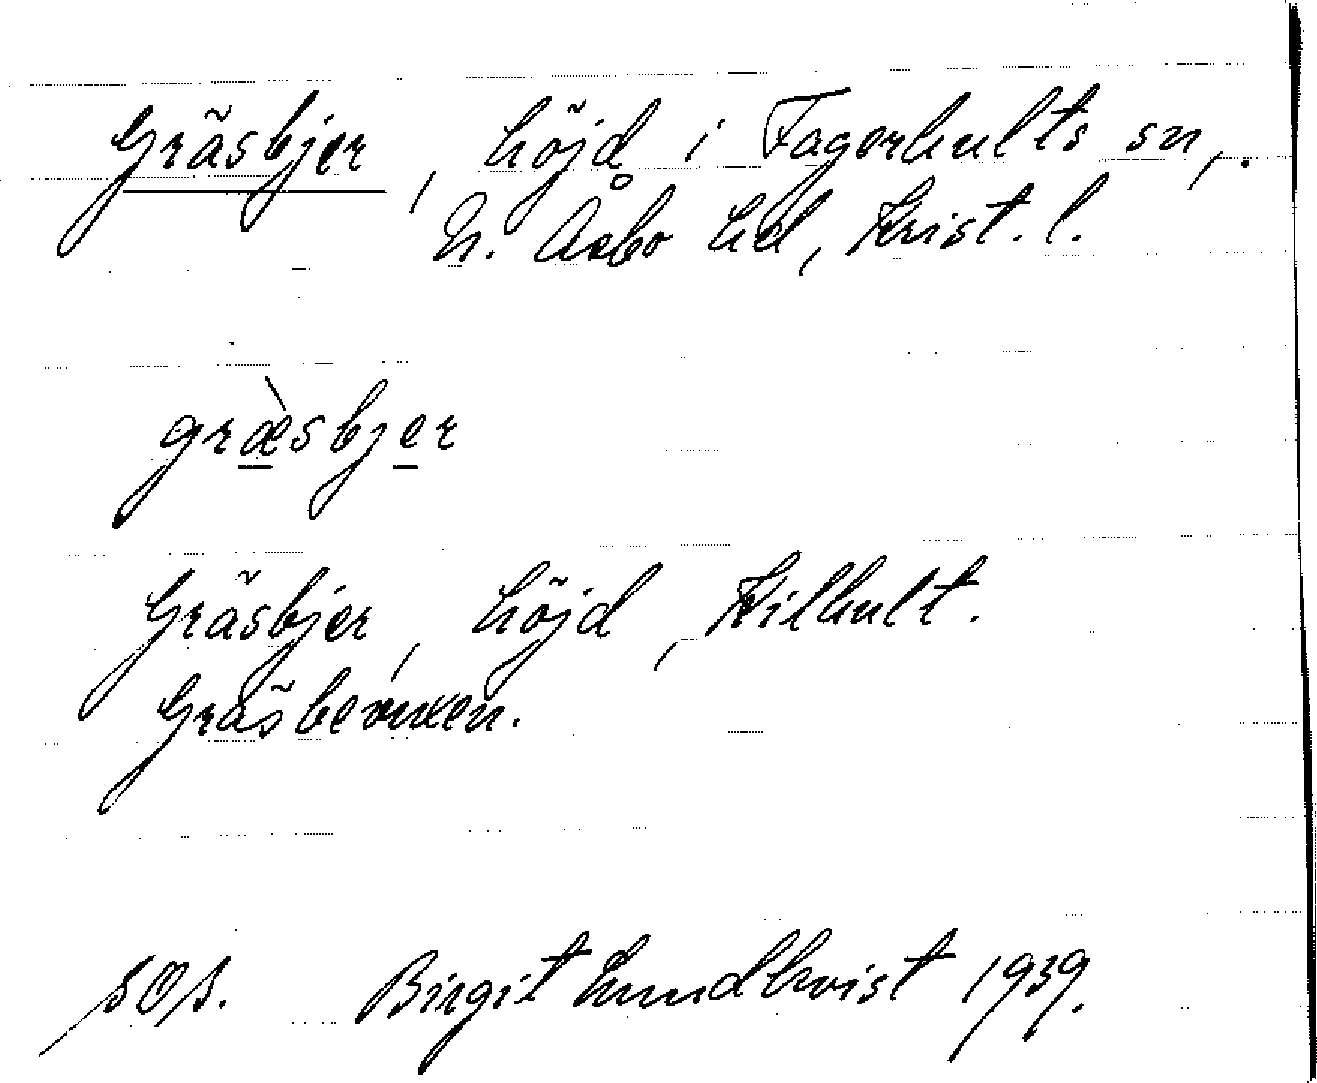 Gräsbjer, höjd i Fagerhults sn,.
N. Åsbo hd, Krist. l.
græ̀sbjer
Gräsbjer, höjd, Kilhult.
SOS. Birgit Lundkvist 1939.